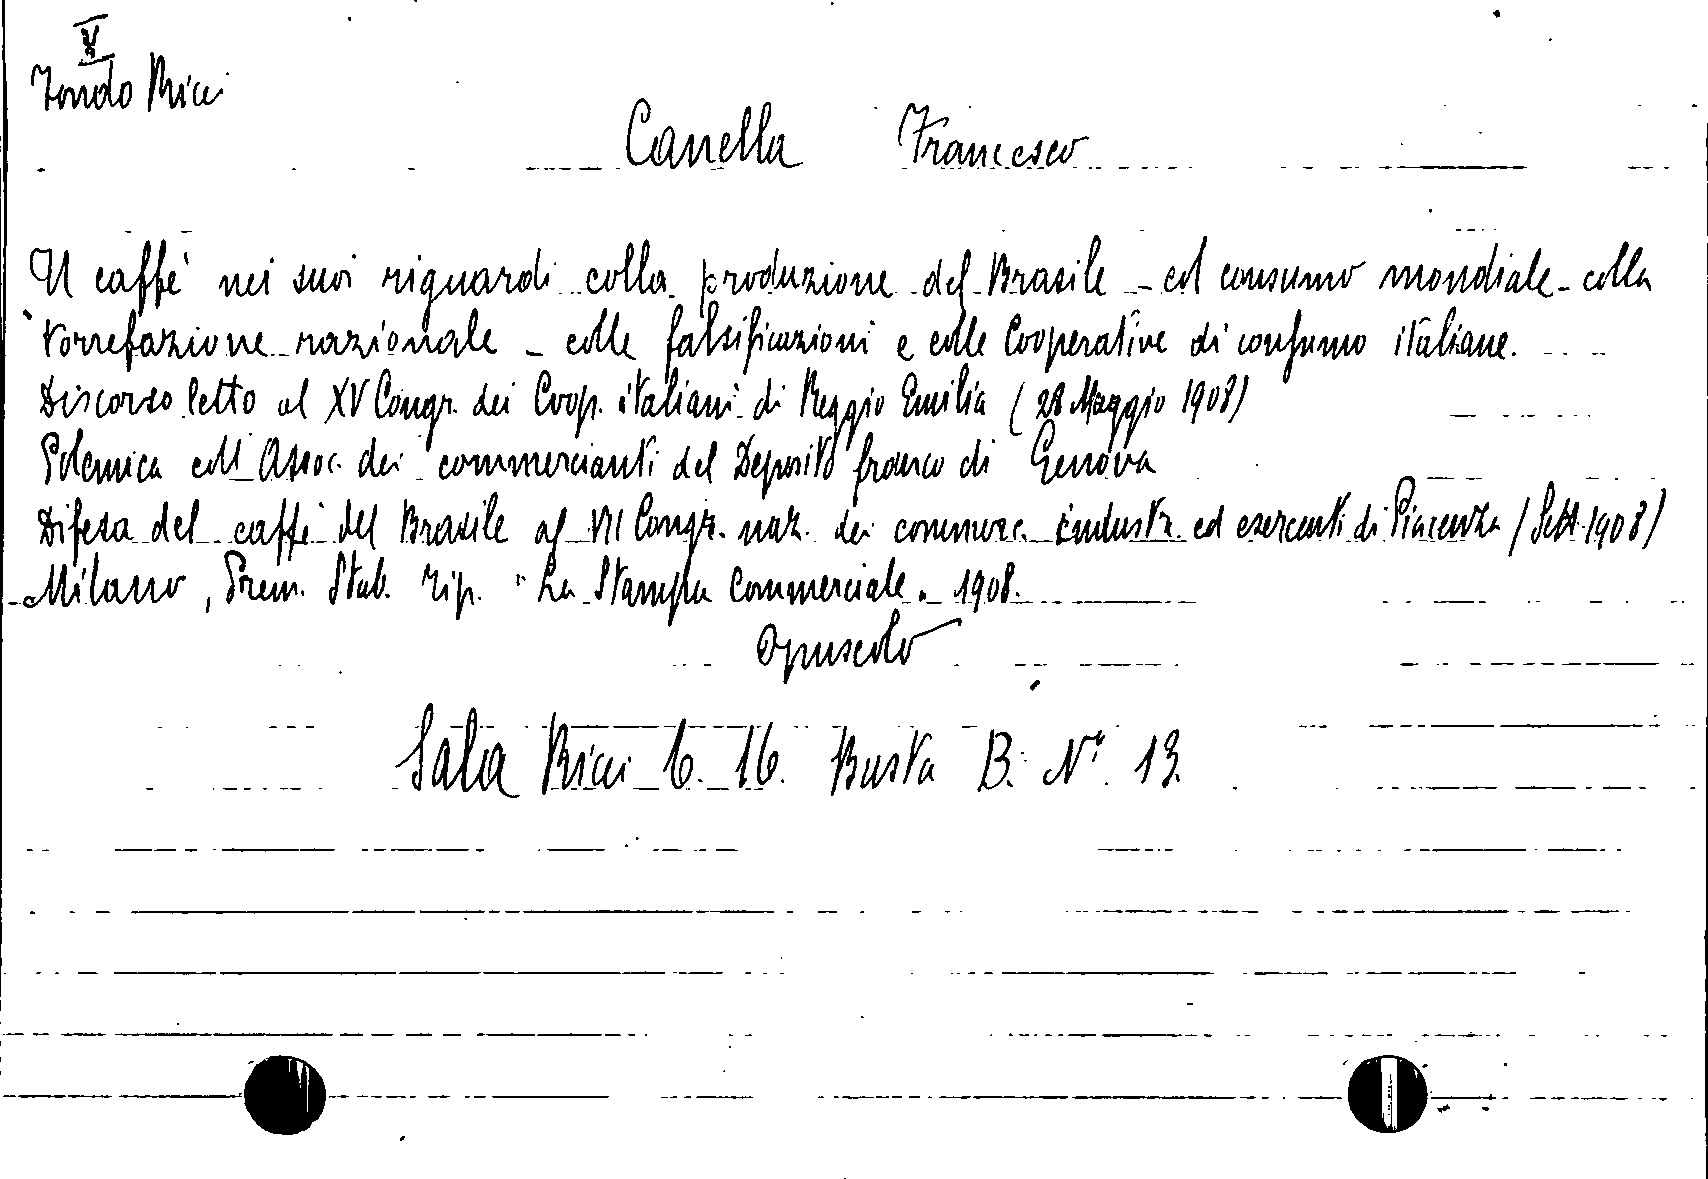 V
Fondo Ricci
Canella Francesco
Il caffè nei suoi riguardi colla produzione del Brasile - col consumo mondiale - colla
torrefazione nazionale - colle falsificazioni e colle Cooperative di consumo italiane.
Discorso letto al XV Congr. dei Coop. italiani di Reggio Emilia (28 Maggio 1908)
Polemica coll'Assoc. dei commercianti del Deposito franco di Genova
Difesa del caffè del Brasile al VII Congr. naz. dei commerc. industr. ed esercenti di Piacenza (Sett. 1908)
Milano, Prem. Stab. Tip. "La Stampa Commerciale" 1908.
Opuscolo
Sala Ricci 6. 16. Busta B. N° 13.